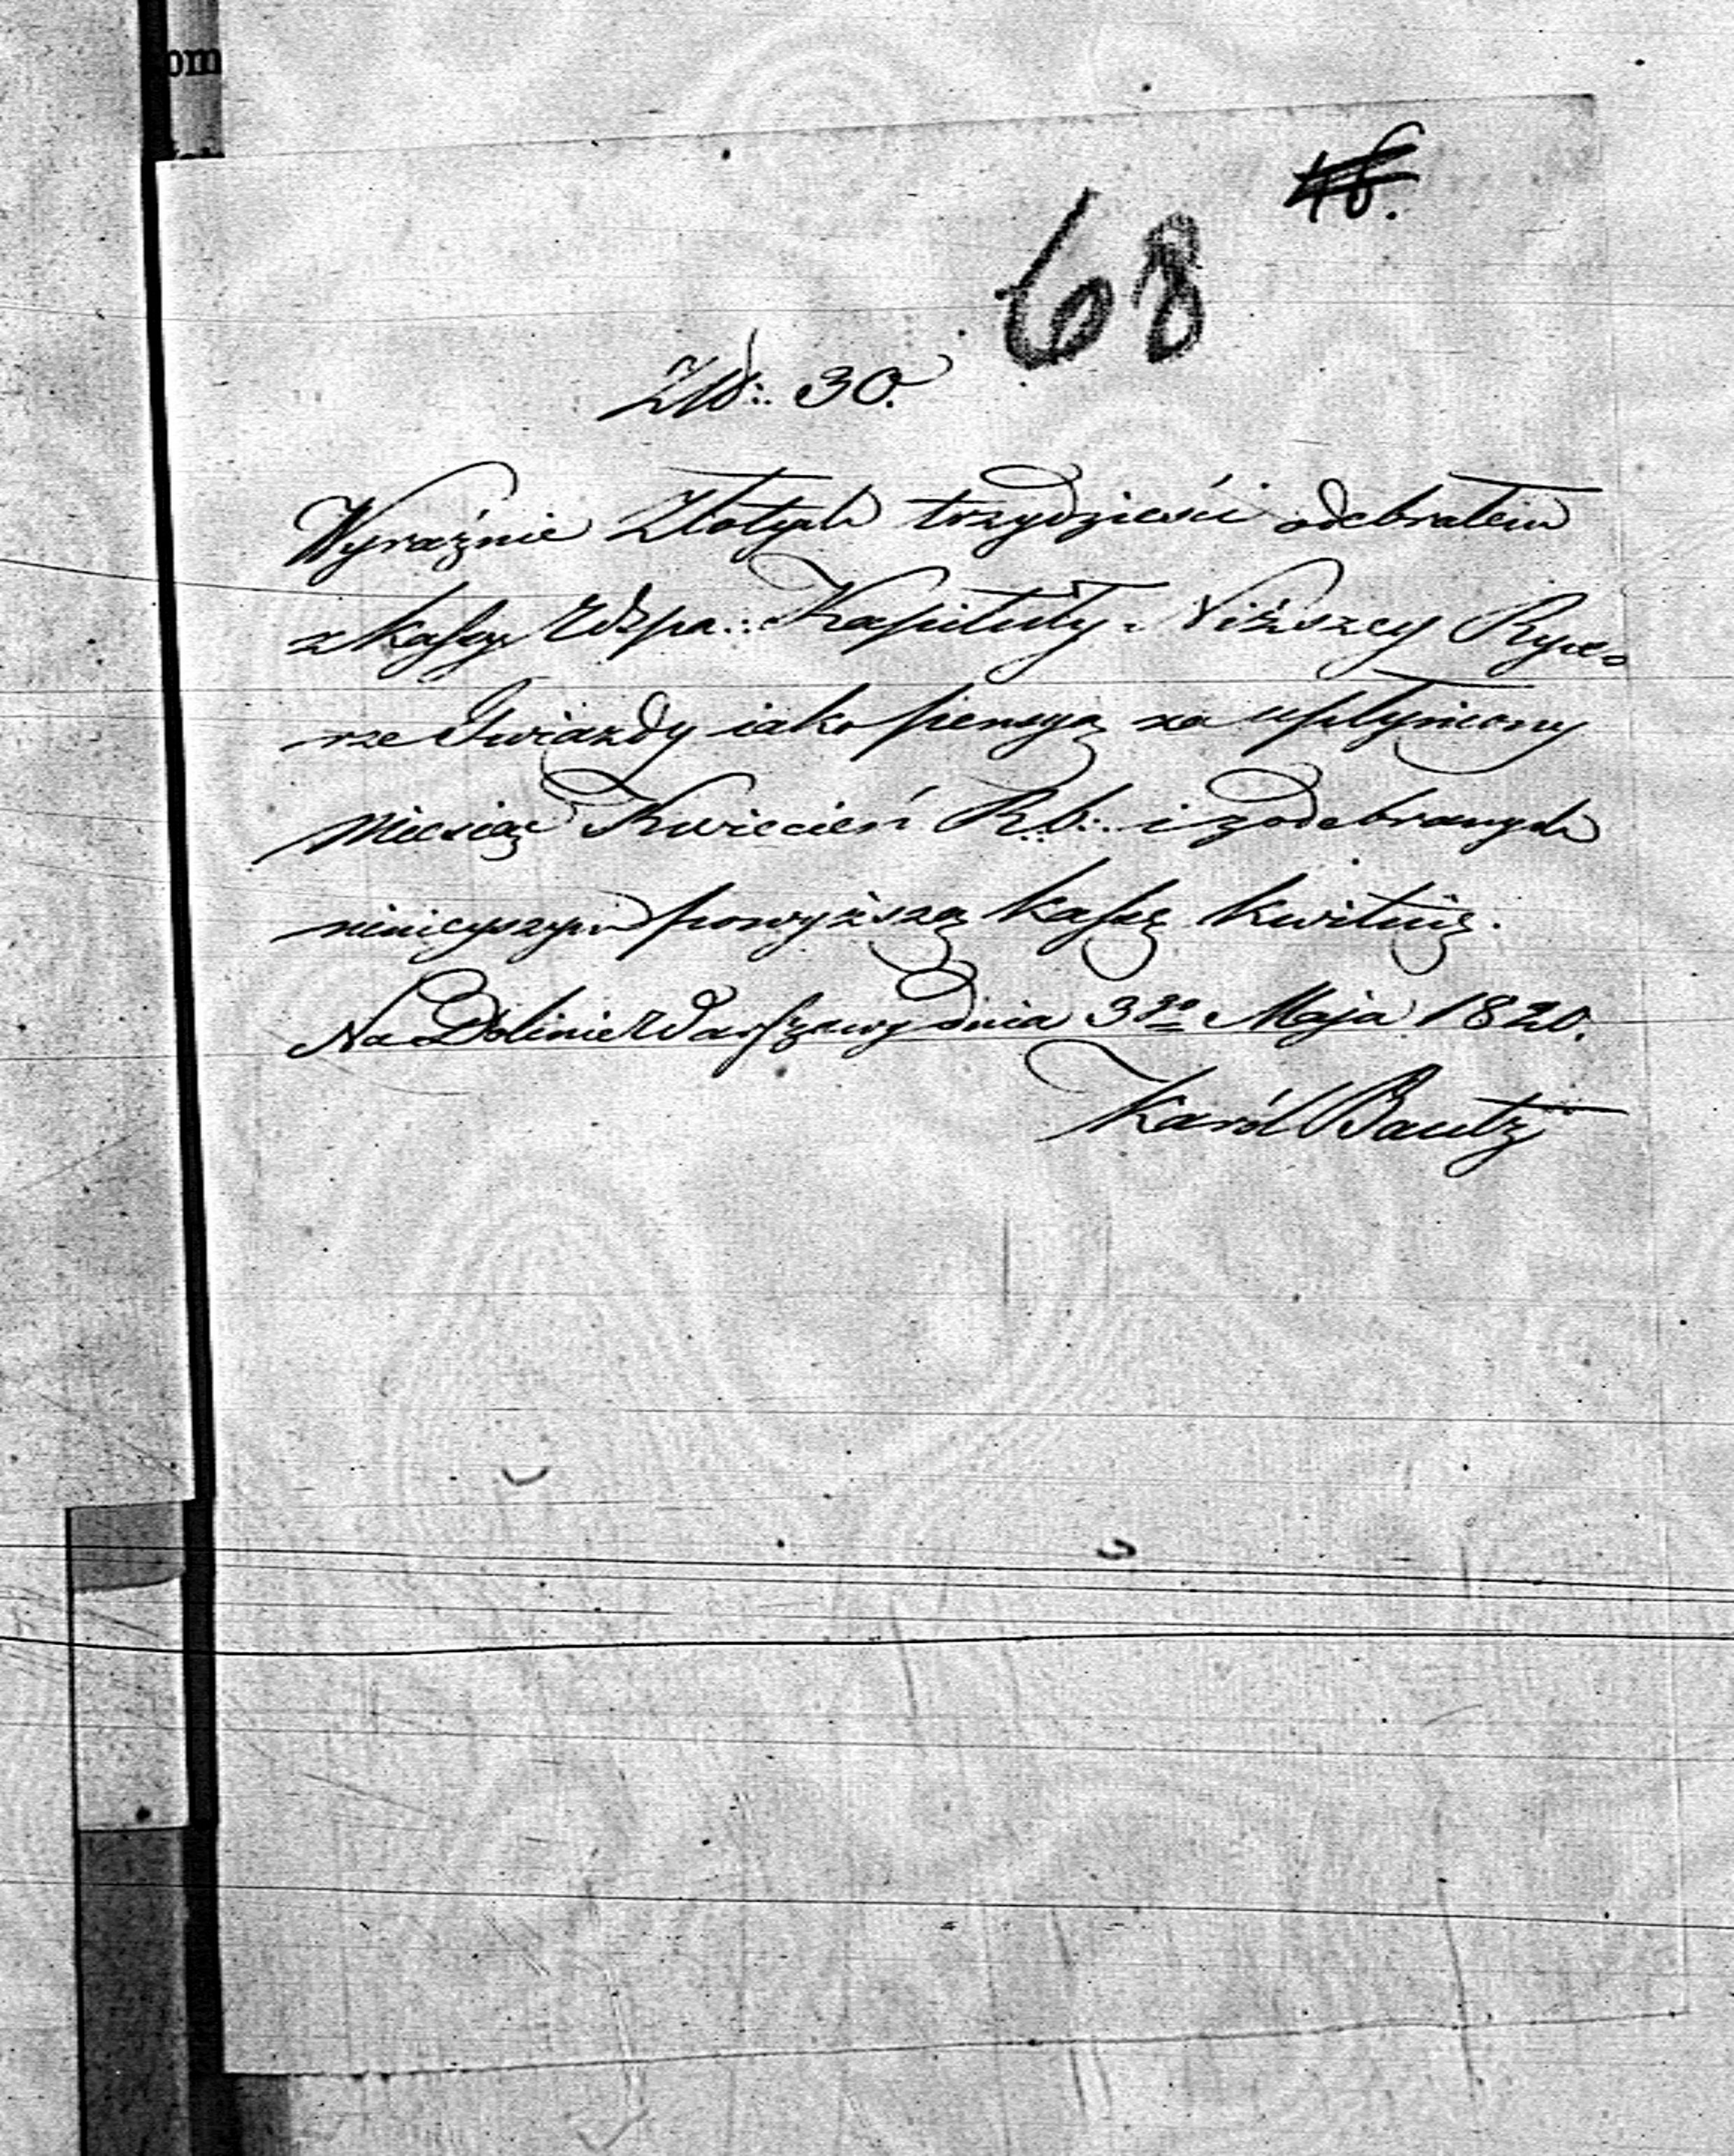 om
46.
68
Złł: 30.
Wyraźnie Złotych trzydzieści odebrałem
z kassy Wspa: Kapituły Niższey Ryce-
rze Gwiazdy iako pensyą za upłyniony
Miesiąc Kwiecień R.b: i z odebranych
ninieyszym powyższą kassę kwituię.
Na Dolinie Warszawy dnia 3go Maja 1820.
Karól Bautz